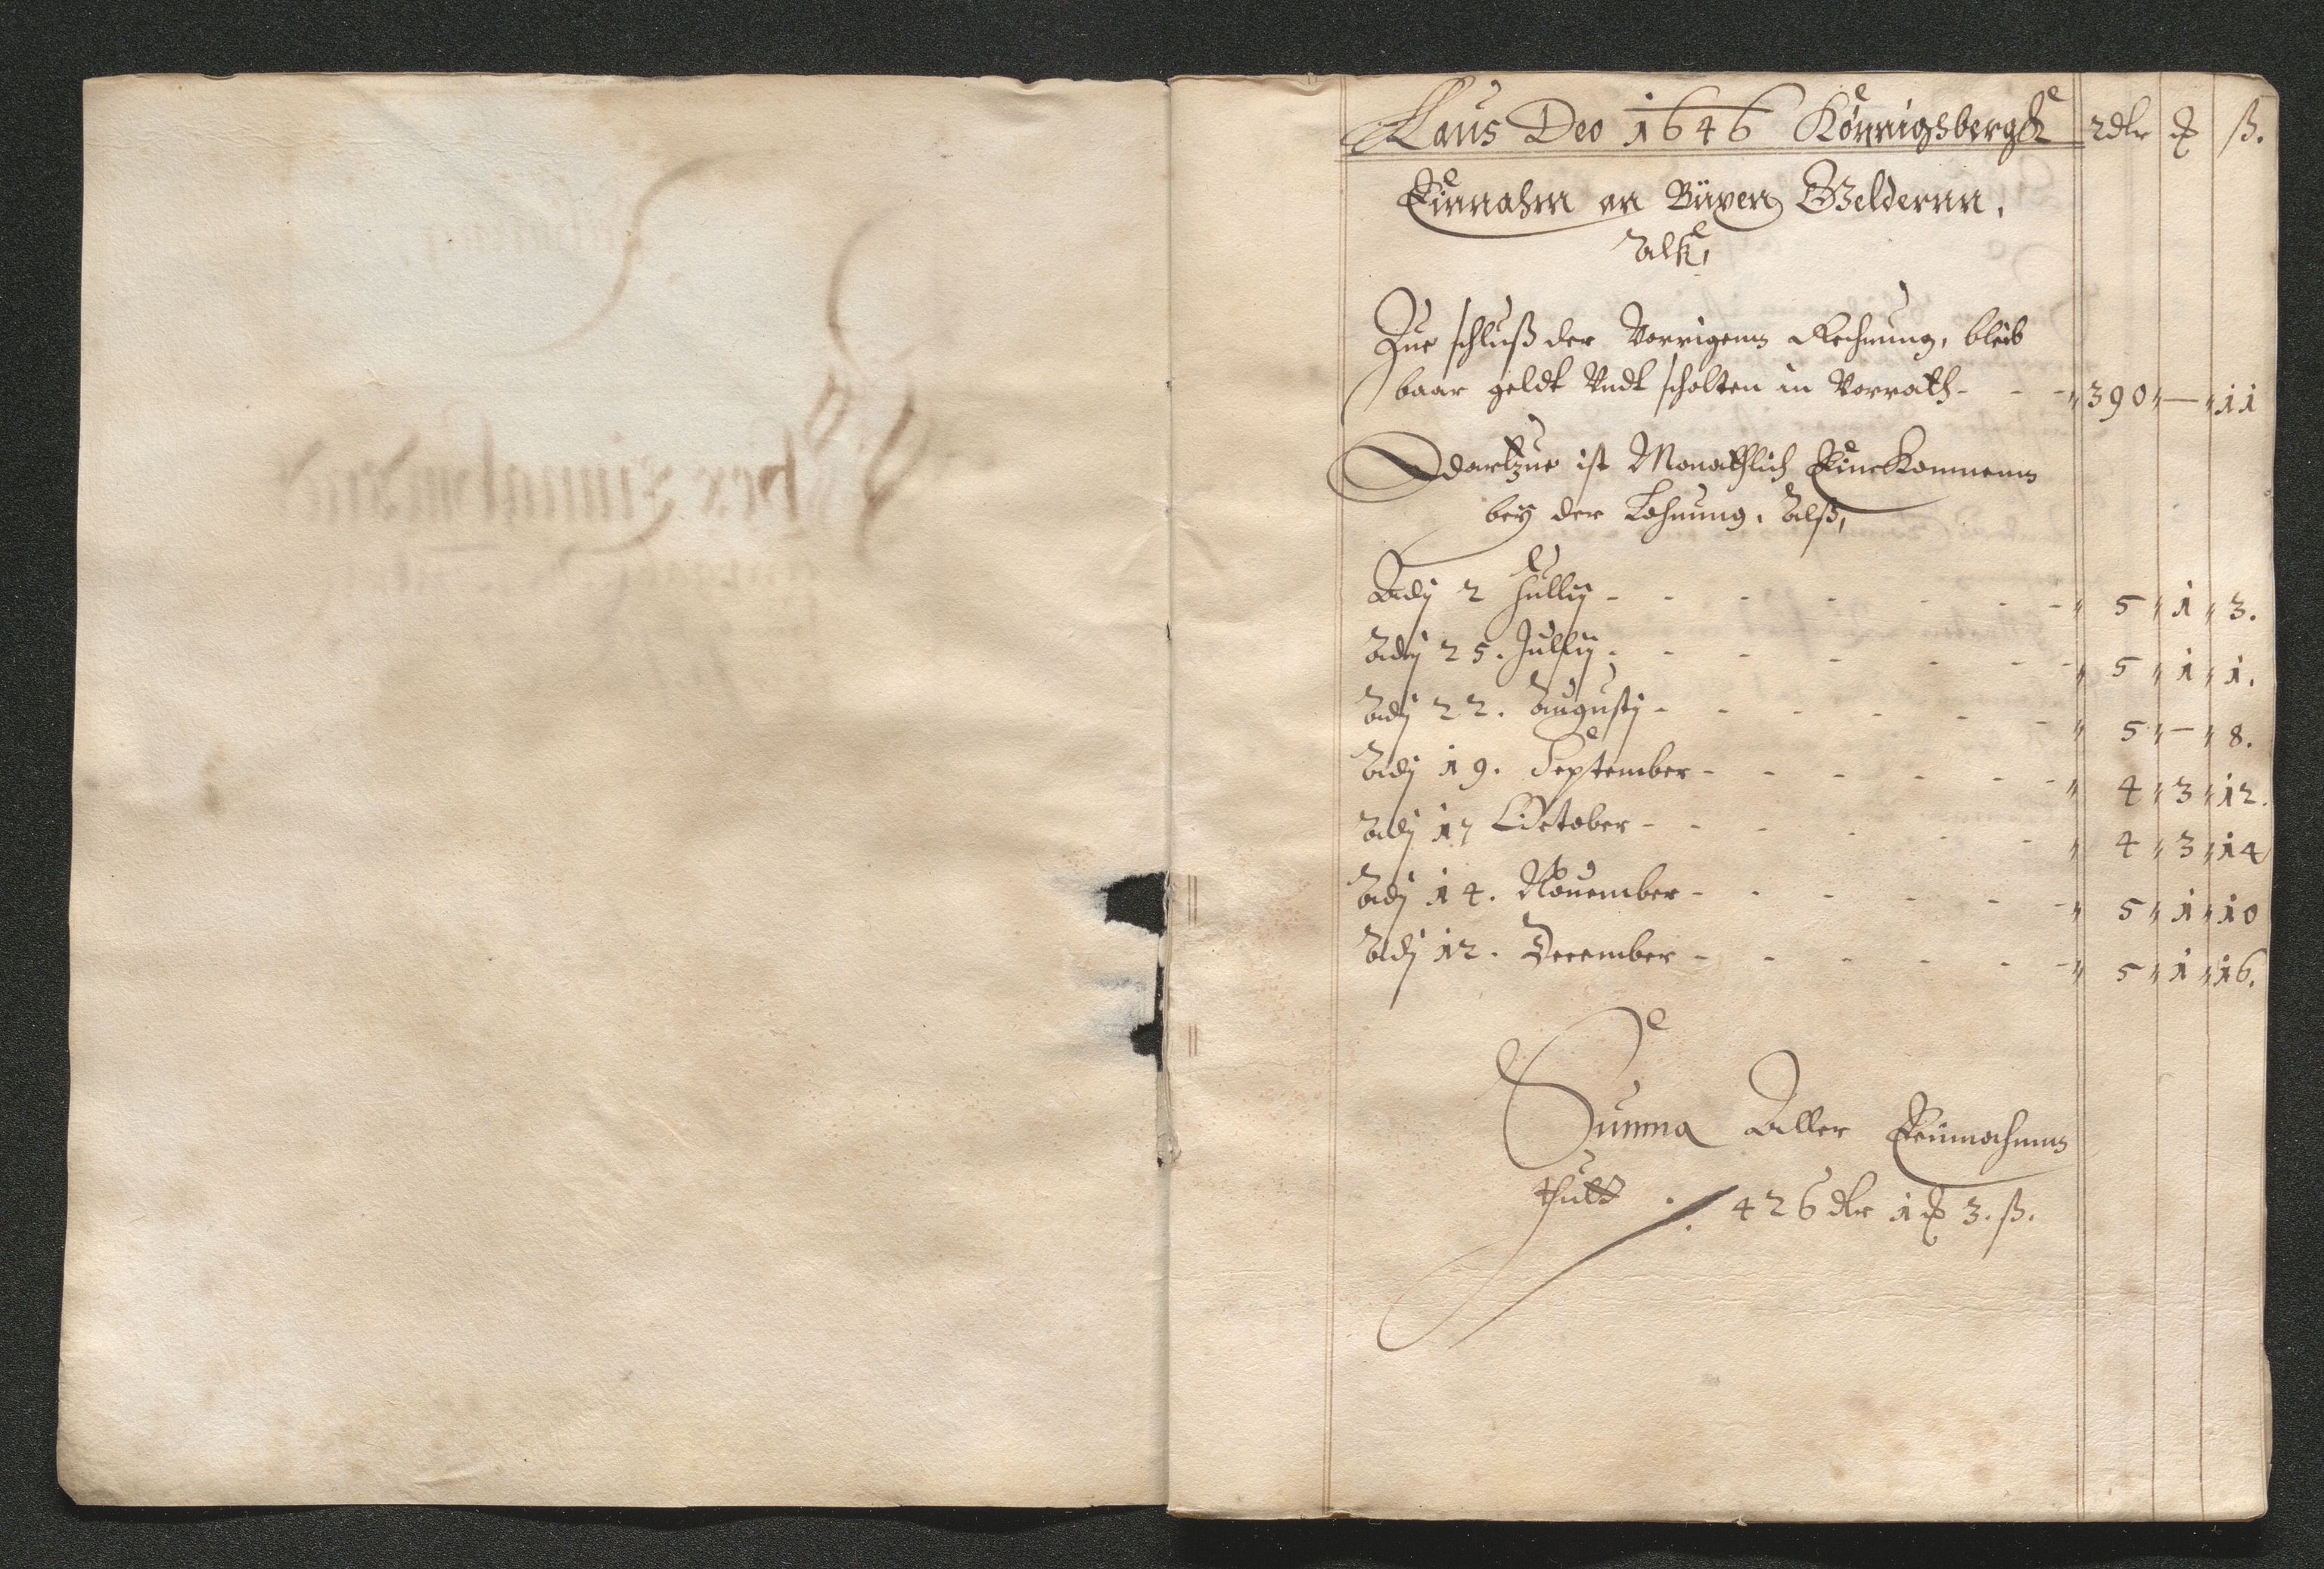 Laus Deo 1646 Königsbergk
Rdlr ß.
Einnahm an Büxen Geldernn,
Alß,
Zue schluß der Vorrigenn Rechnung, bleib
baar geldt Vndt scholten in Vorrath - - - 390 — 11
Dartzue ist Monathlich Einkommenn
bey der Lohnung, Alß,
Adij 2 Jullij - - - - - - 5 1 3.
Adij 25. Jullij - - - - - - 5 1 1.
Adij 22. Augustij - - - - - - 5 — 8.
Adij 19. September - - - - - 4 3 12.
Adij 17 October - - - - - - 4 3 14
Adij 14. Nouember - - - - - - 5 1 10
Adij 12. December - - - - - - 5 1 16.
Summa Aller Einnahmen
thutt ./. 426 dlr 1 3. ß.